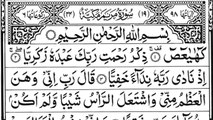 سُورَةُ مَرْيَمَ مَكِّيَّةٌ
بِسْمِ اللّٰهِ الرَّحْمٰنِ الرَّحِيْمِ
كٓهٰيٰعٓصٓ ذِكْرُ رَحْمَتِ رَبِّكَ عَبْدَهٗ زَكَرِيَّا
اِذْ نَادٰى رَبَّهٗ نِدَآءً خَفِيًّا قَالَ رَبِّ اِنِّيْ وَهَنَ
الْعَظْمُ مِنِّيْ وَاشْتَعَلَ الرَّاْسُ شَيْبًا وَّلَمْ اَكُنْۢ